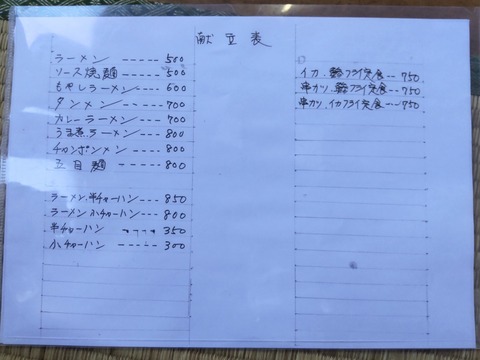 献立表
ラーメン ----- 500
ソース焼麺 ---- 500
もやしラーメン --- 600
タンメン ---- 700
カレーラーメン --- 700
うま煮ラーメン --- 800
チャンポンメン --- 800
五目麺 ----- 800
ラーメン、半チャーハン --- 850
ラーメン小チャーハン --- 800
半チャーハン ---- 350
小チャーハン ----- 300
イカ、フライ定食 -- 750
串カツ、フライ定食 -- 750
串カツ、イカフライ定食 -- 750